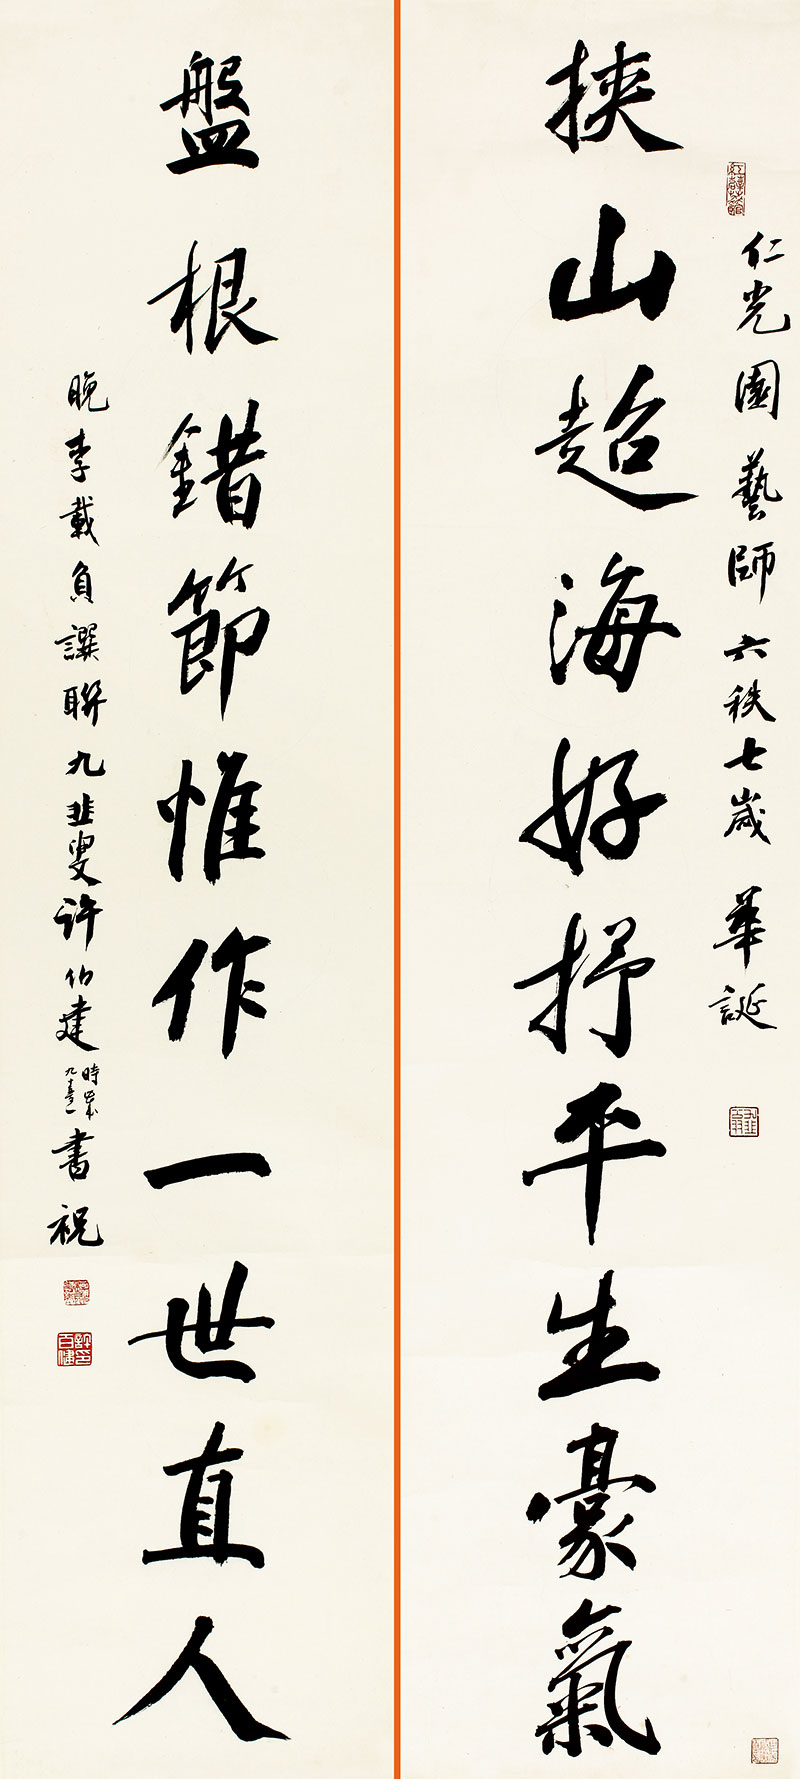 仁光園藝師六秩七歲華誕
挾山超海好抒平生豪氣
盤根錯節惟作一世直人
晚李載負譔聯九韭叟許伯建時書祝